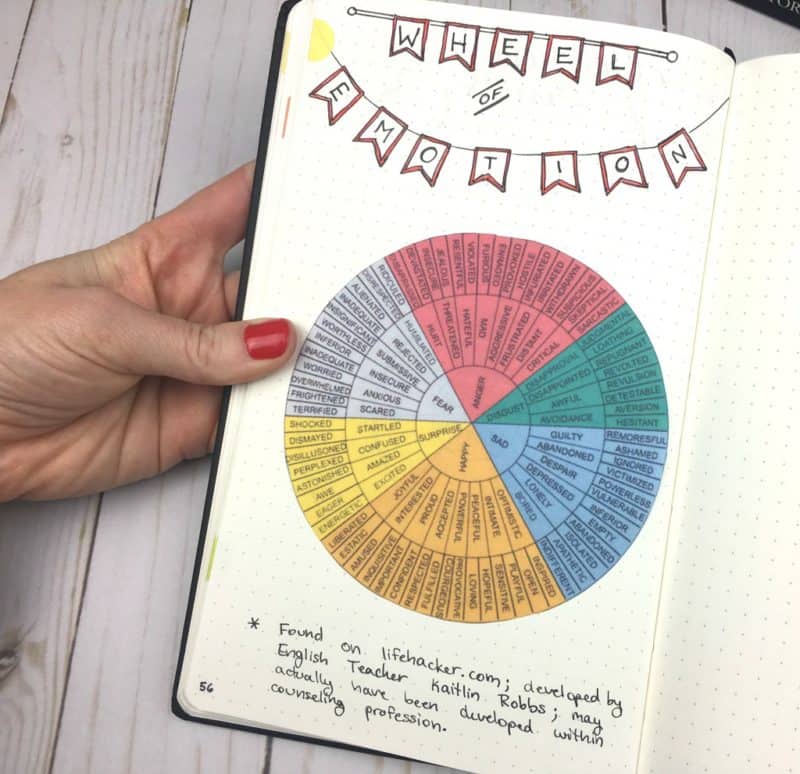 WHEEL
OF
EMOTION
ANGER
HURT
THREATENED
HATEFUL
MAD
AGGRESSIVE
FRUSTRATED
DISTANT
CRITICAL
EMBARRASSED
DEVASTATED
INSECURE
JEALOUS
RESENTFUL
VIOLATED
FURIOUS
ENRAGED
PROVOKED
HOSTILE
INFURIATED
IRRITATED
WITHDRAWN
SUSPICIOUS
SKEPTICAL
SARCASTIC
DISGUST
DISAPPROVAL
DISAPPOINTED
AWFUL
AVOIDANCE
JUDGMENTAL
LOATHING
REPUGNANT
REVOLTED
REVULSION
DETESTABLE
AVERSION
HESITANT
SAD
GUILTY
ABANDONED
DESPAIR
DEPRESSED
LONELY
BORED
REMORESFUL
ASHAMED
IGNORED
VICTIMIZED
POWERLESS
VULNERABLE
INFERIOR
EMPTY
ABANDONED
ISOLATED
APATHETIC
INDIFFERENT
HAPPY
OPTIMISTIC
INTIMATE
PEACEFUL
POWERFUL
ACCEPTED
PROUD
INTERESTED
JOYFUL
INSPIRED
OPEN
PLAYFUL
SENSITIVE
HOPEFUL
LOVING
PROVOCATIVE
COURAGEOUS
FULFILLED
RESPECTED
CONFIDENT
IMPORTANT
INQUISITIVE
AMUSED
ESTATIC
LIBERATED
SURPRISE
EXCITED
AMAZED
CONFUSED
STARTLED
ENERGETIC
EAGER
AWE
ASTONISHED
PERPLEXED
DISILLUSONED
DISMAYED
SHOCKED
FEAR
SCARED
ANXIOUS
INSECURE
SUBMISSIVE
REJECTED
HUMILIATED
TERRIFIED
FRIGHTENED
OVERWHELMED
WORRIED
INADEQUATE
INFERIOR
WORTHLESS
INSIGNIFICANT
INADEQUATE
ALIENATED
DISRESPECTED
RIDICULED
* Found on lifehacker.com; developed by
English Teacher Kaitlin Robbs; may
actually have been developed within
counseling profession.
56